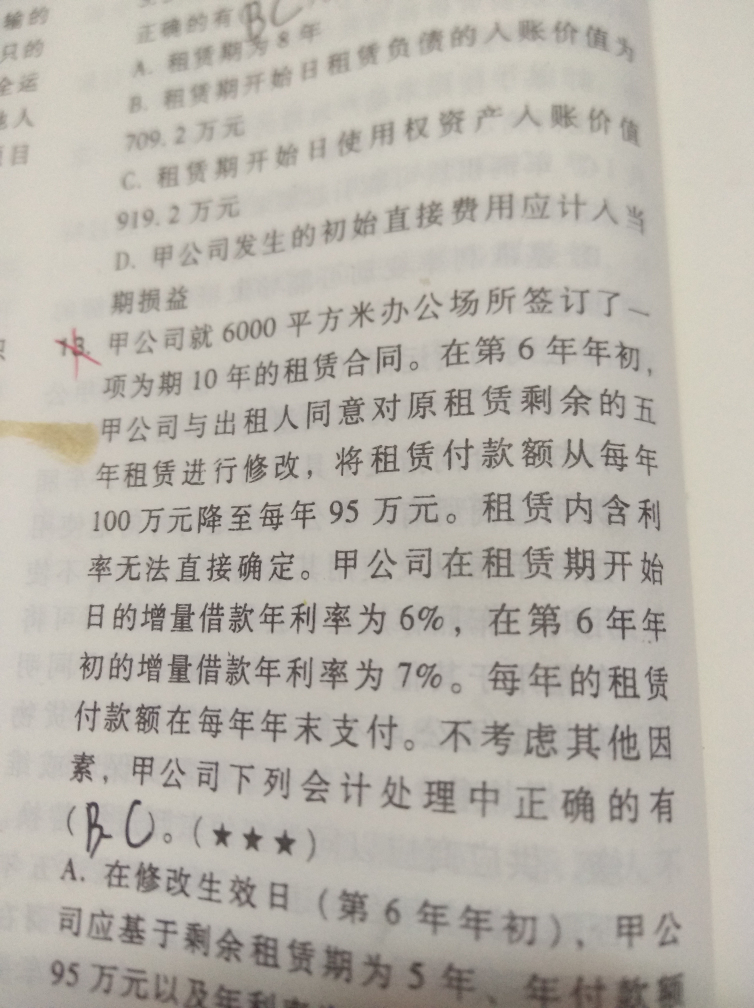 输的
只的
全运
他人
项目
正确的有(BC
A. 租赁期为8年
B. 租赁期开始日租赁负债的入账价值为
709.2万元
C. 租赁期开始日使用权资产入账价值
919.2万元
D. 甲公司发生的初始直接费用应计入当
期损益
13. 甲公司就6000平方米办公场所签订了一
项为期10年的租赁合同。在第6年年初,
甲公司与出租人同意对原租赁剩余的五
年租赁进行修改,将租赁付款额从每年
100万元降至每年95万元。租赁内含利
率无法直接确定。甲公司在租赁期开始
日的增量借款年利率为6%,在第6年年
初的增量借款年利率为7%。每年的租赁
付款额在每年年末支付。不考虑其他因
素,甲公司下列会计处理中正确的有
(BC)。(★★★)
A. 在修改生效日(第6年年初),甲公
司应基于剩余租赁期为5年、年付款额
95万元以及年利率